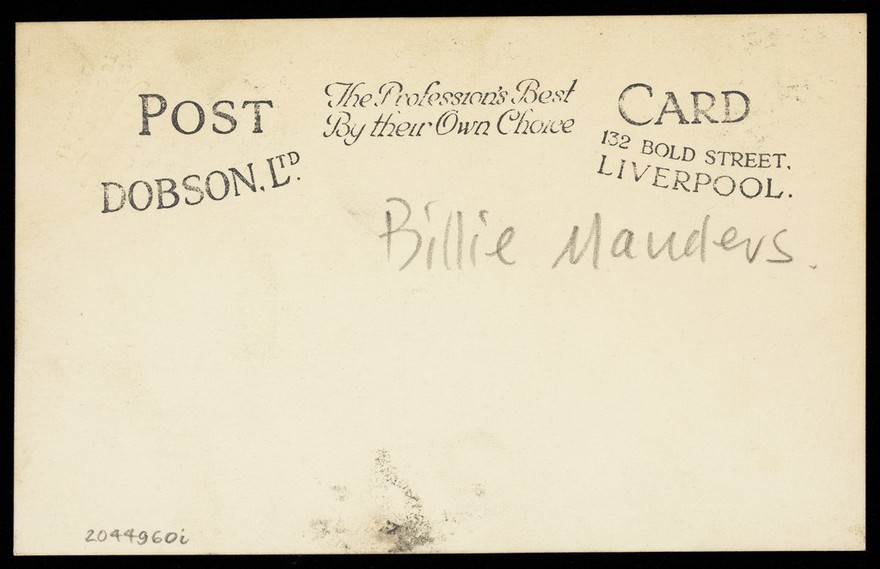 POST The Profession's Best CARD
By their Own Choice
DOBSON, LTD. 132 BOLD STREET,
LIVERPOOL.
Billie Manders.
2044960i